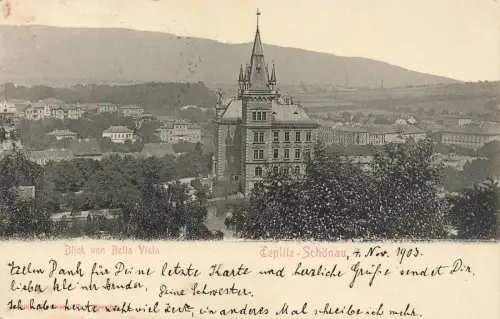 Blick von Bella Vista
Teplitz-Schönau, 4. Nov. 1903.
Vielen Dank für Deine letzte Karte und herzliche Grüße sendet Dir,
lieber kleiner Bruder, Deine Schwester.
Ich habe heute nicht viel Zeit, ein anderes Mal schreibe ich mehr.